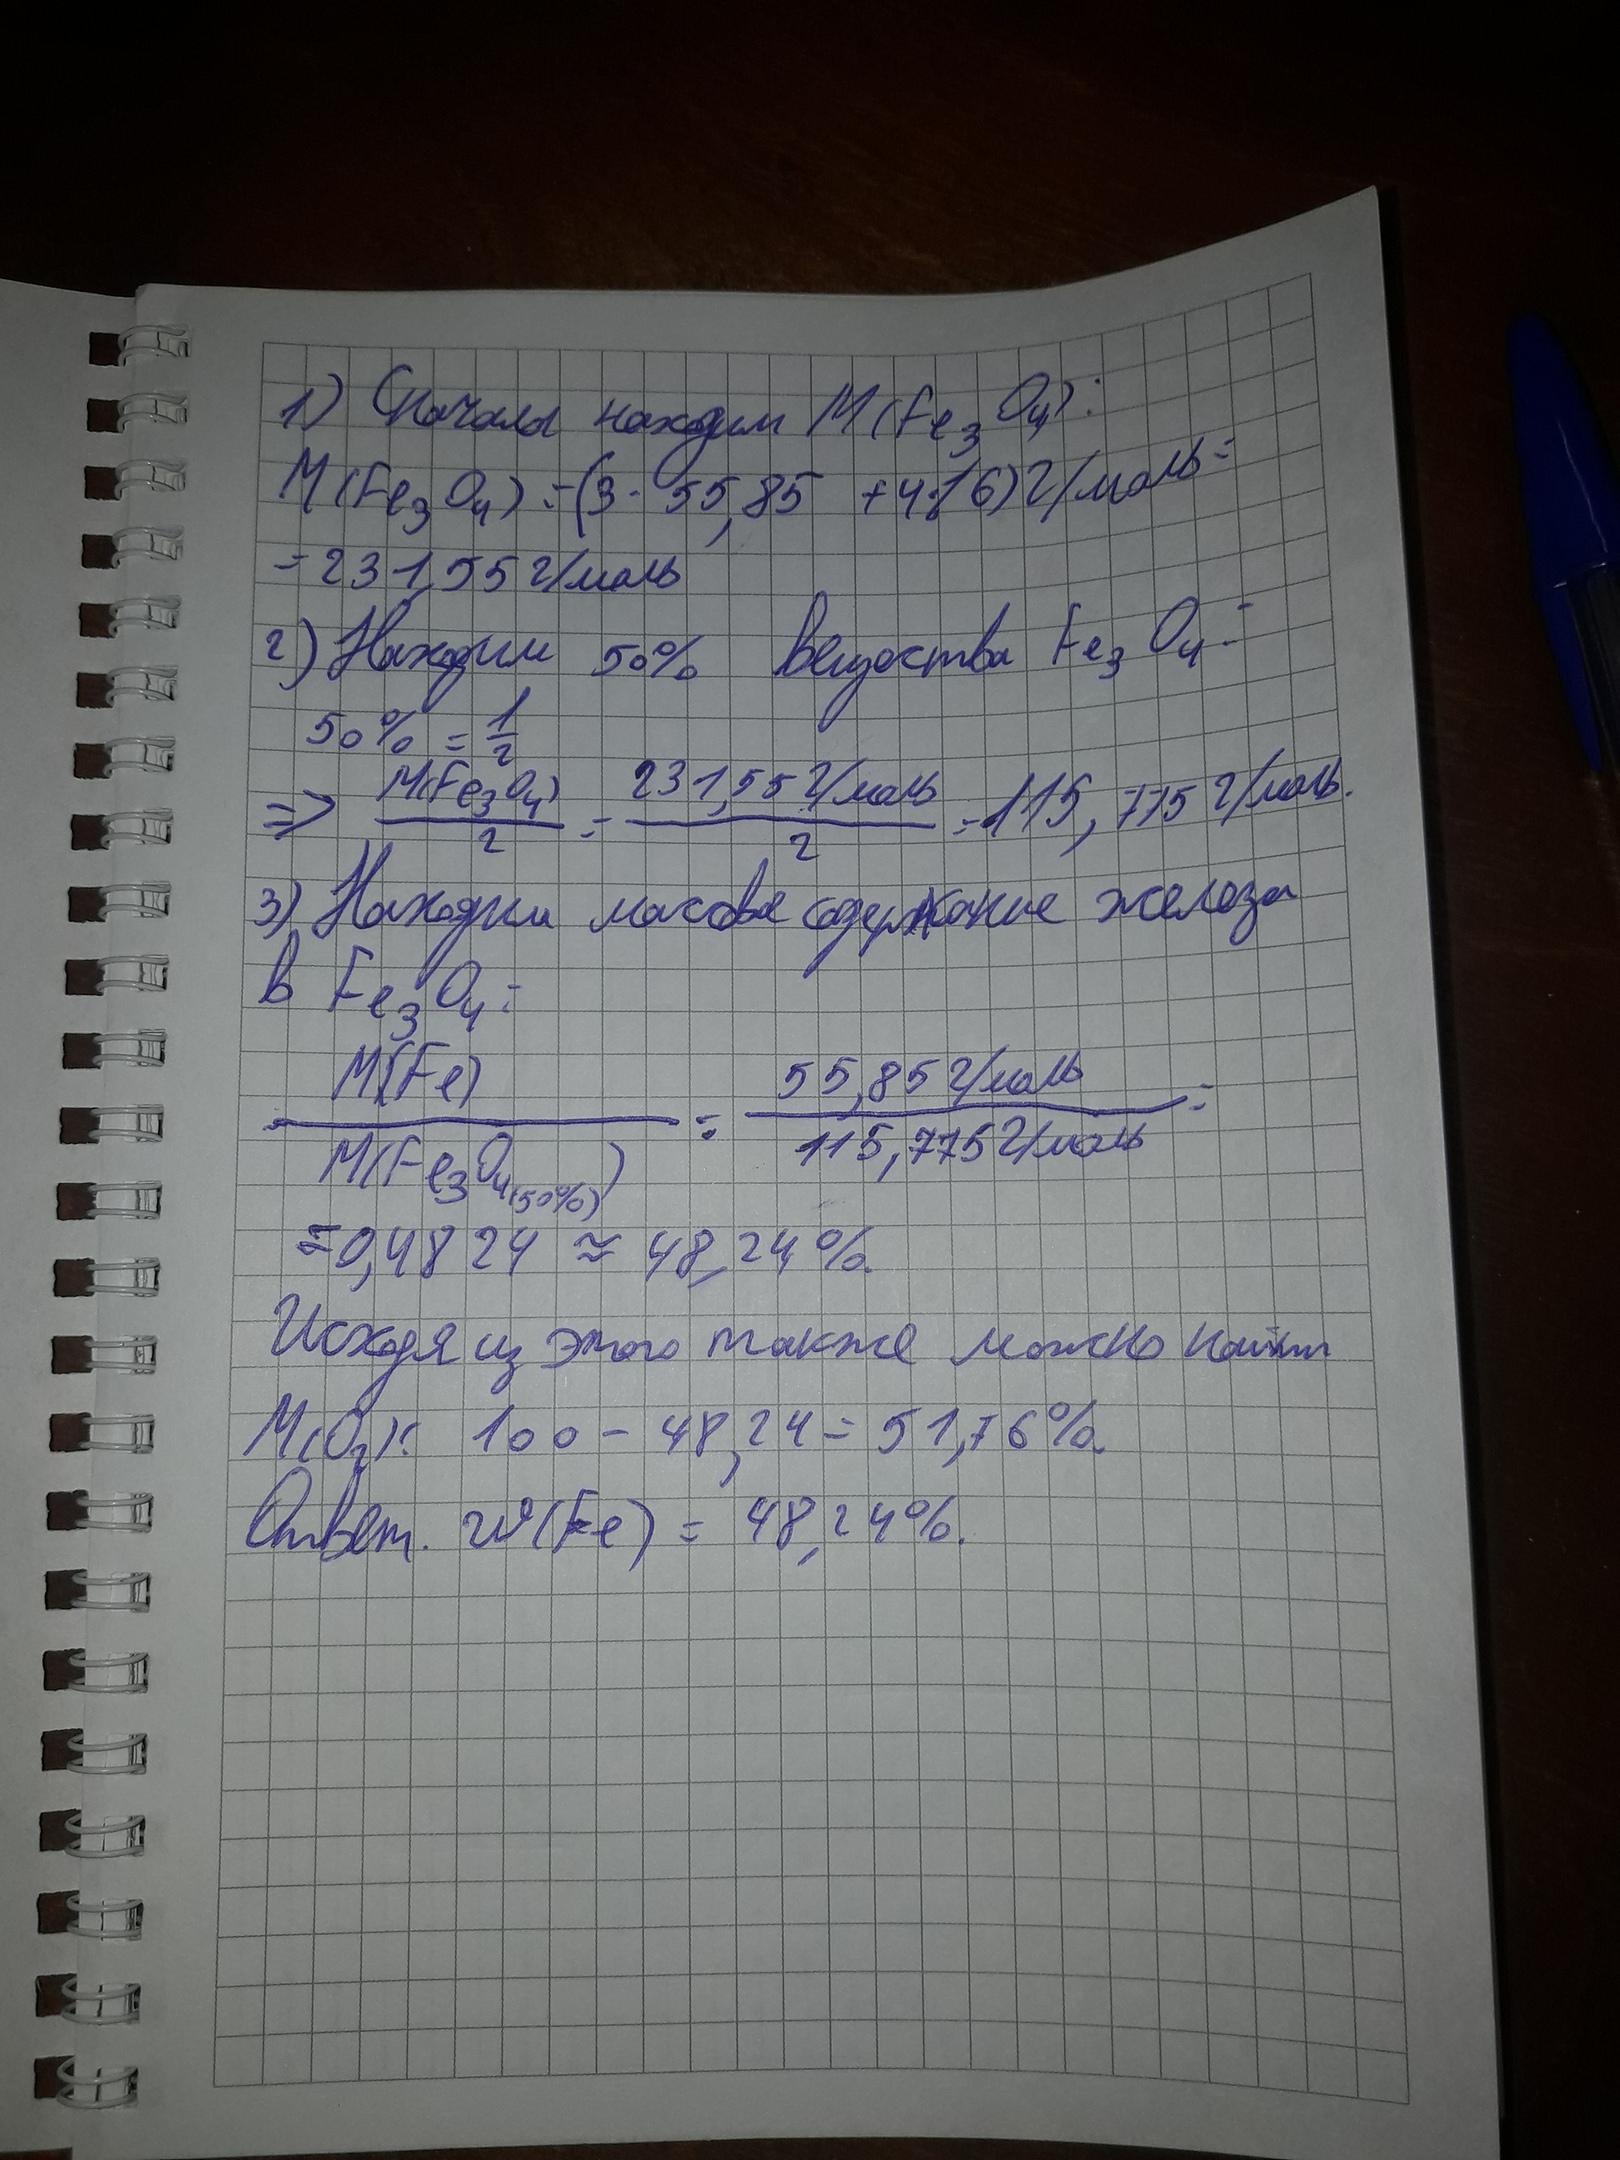 1) Сначала находим M(Fe₃O₄):
M(Fe₃O₄) = (3 · 55,85 + 4·16) г/моль =
= 231,55 г/моль
2) Находим 50% вещества Fe₃O₄:
50% = 1/2
=> M(Fe₃O₄)/2 = 231,55 г/моль/2 = 115,775 г/моль.
3) Находим массовое содержание железа
в Fe₃O₄:
M(Fe)/M(Fe₃O₄(50%)) = 55,85 г/моль/115,775 г/моль =
= 0,4824 ≈ 48,24%.
Исходя из этого также можно найти
M(O₂): 100 - 48,24 = 51,76%.
Ответ. w(Fe) = 48,24%.